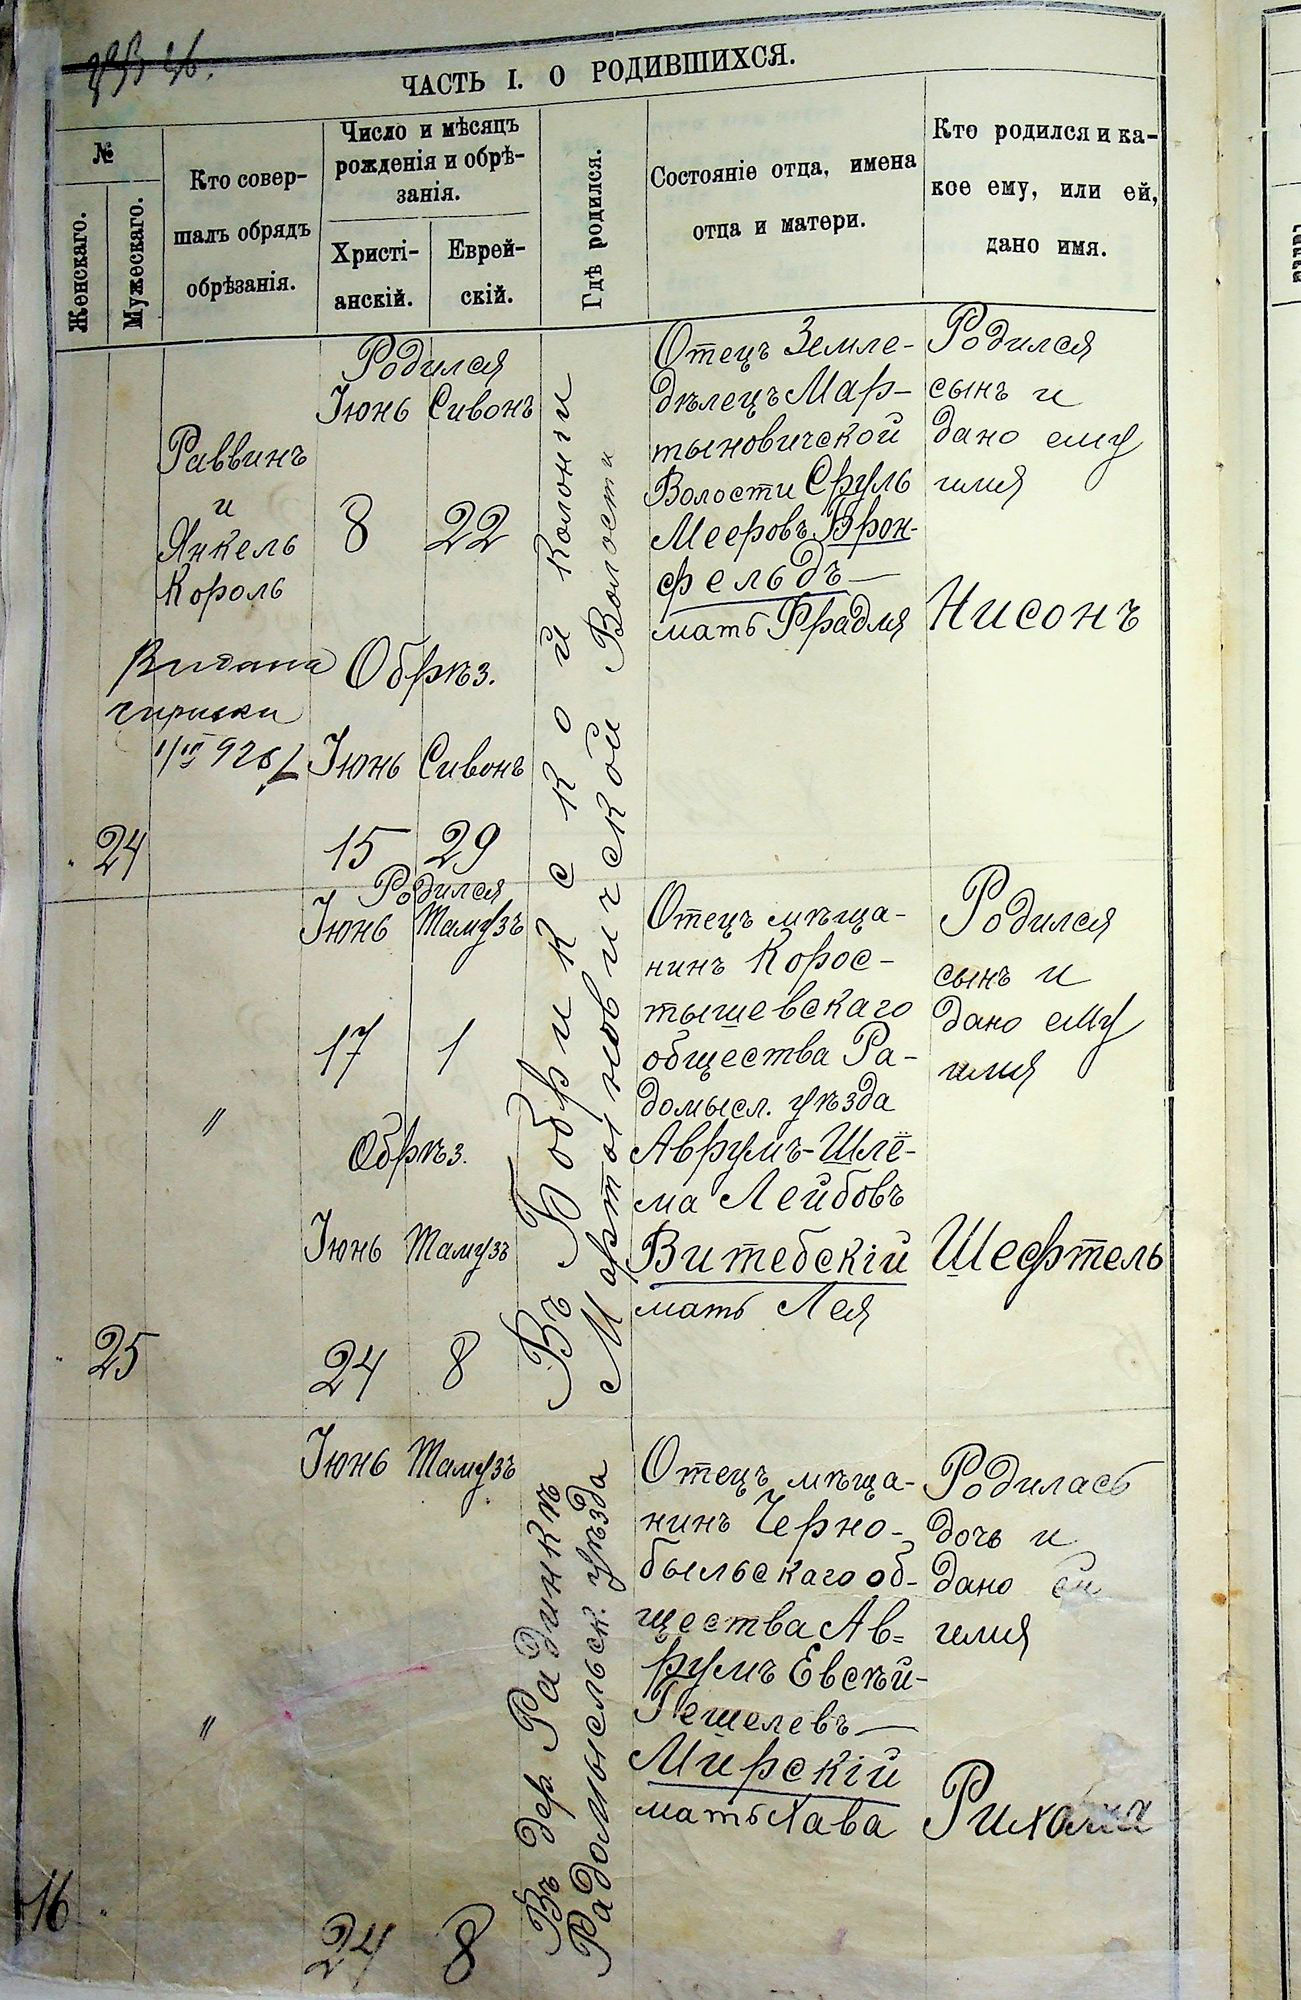 ЧАСТЬ I. О РОДИВШИХСЯ.
№
Женскаго.
Мужескаго.
Кто совер-
шалъ обрядъ
обрѣзанія.
Число и мѣсяцъ
рожденія и обрѣ-
занія.
Христі-
анскій.
Еврей-
скій.
Гдѣ родился.
Состояніе отца, имена
отца и матери.
Кто родился и ка-
кое ему, или ей,
дано имя.
24
Раввинъ
и
Янкель
Король
Видана
Родился
Іюнь Сивонъ
8 22
Обрѣз.
Іюнь Сивонъ
15 29
Въ Бобрикской колоніи
Мартыновической Волости
Отецъ Земле-
дѣлецъ Мар-
тыновической
Волости Сруль
Мееровъ Брон-
фельдъ
мать Фрадля
Родился
сынъ и
дано ему
имя
Нисонъ
25
"
Родился
Іюнь Тамузъ
17 1
Обрѣз.
Іюнь Тамузъ
24 8
Отецъ мѣща-
нинъ Корос-
тышевскаго
общества Ра-
домысл. уѣзда
Аврумъ-Шлё-
ма Лейбовъ
Витебскій
мать Лея
Родился
сынъ и
дано ему
имя
Шефтель
16
"
Іюнь Тамузъ
24 8
Въ дер. Радинкѣ
Радомысльск. уѣзда
Отецъ мѣща-
нинъ Черно-
быльскаго об-
щества Ав-
румъ Евсѣй-
Гешелевъ
Мирскій
мать Хава
Родилась
дочь и
дано ей
имя